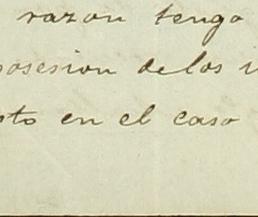 razon tengo
posesion de los
sto en el caso